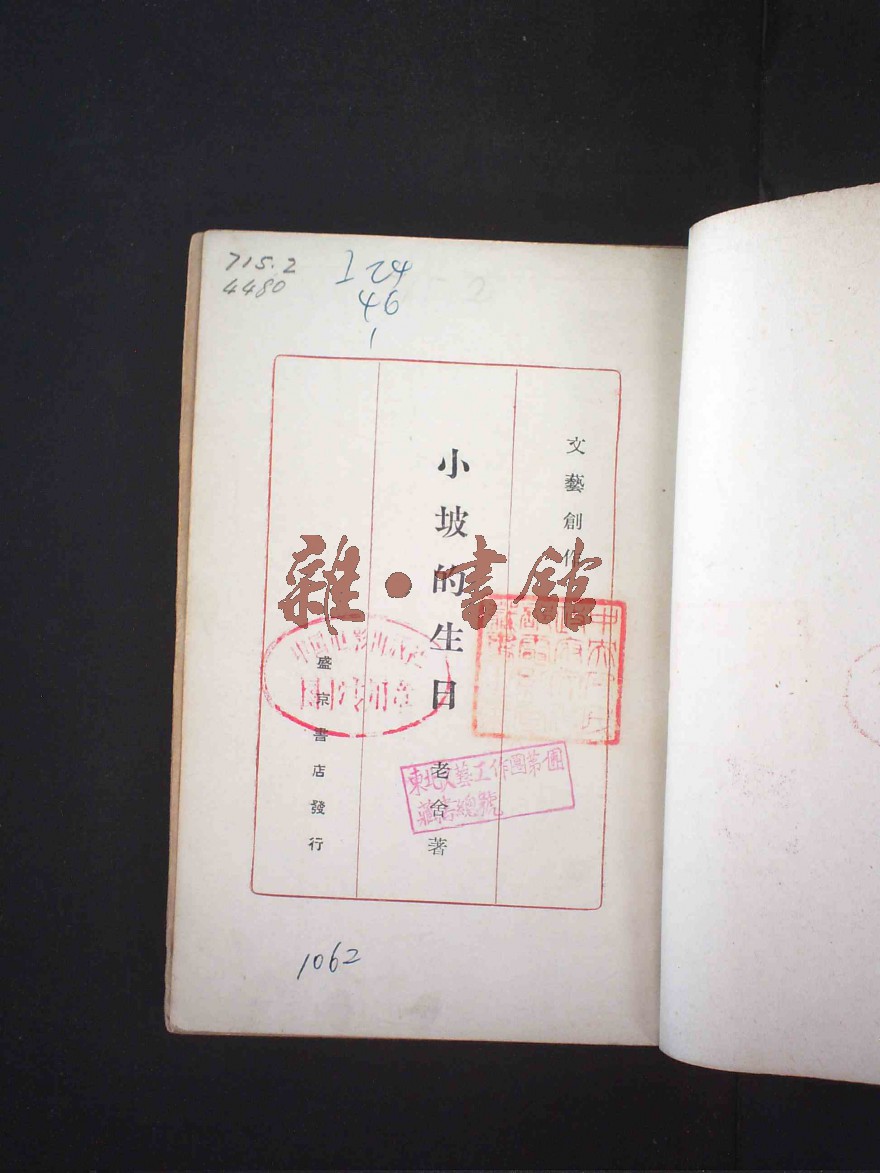 715.2
4480
I 24
46
1
文藝創作
小坡的生日
老舍著
盛京書店發行
雜·書館
東北人藝工作團第團
藏書總號
1062